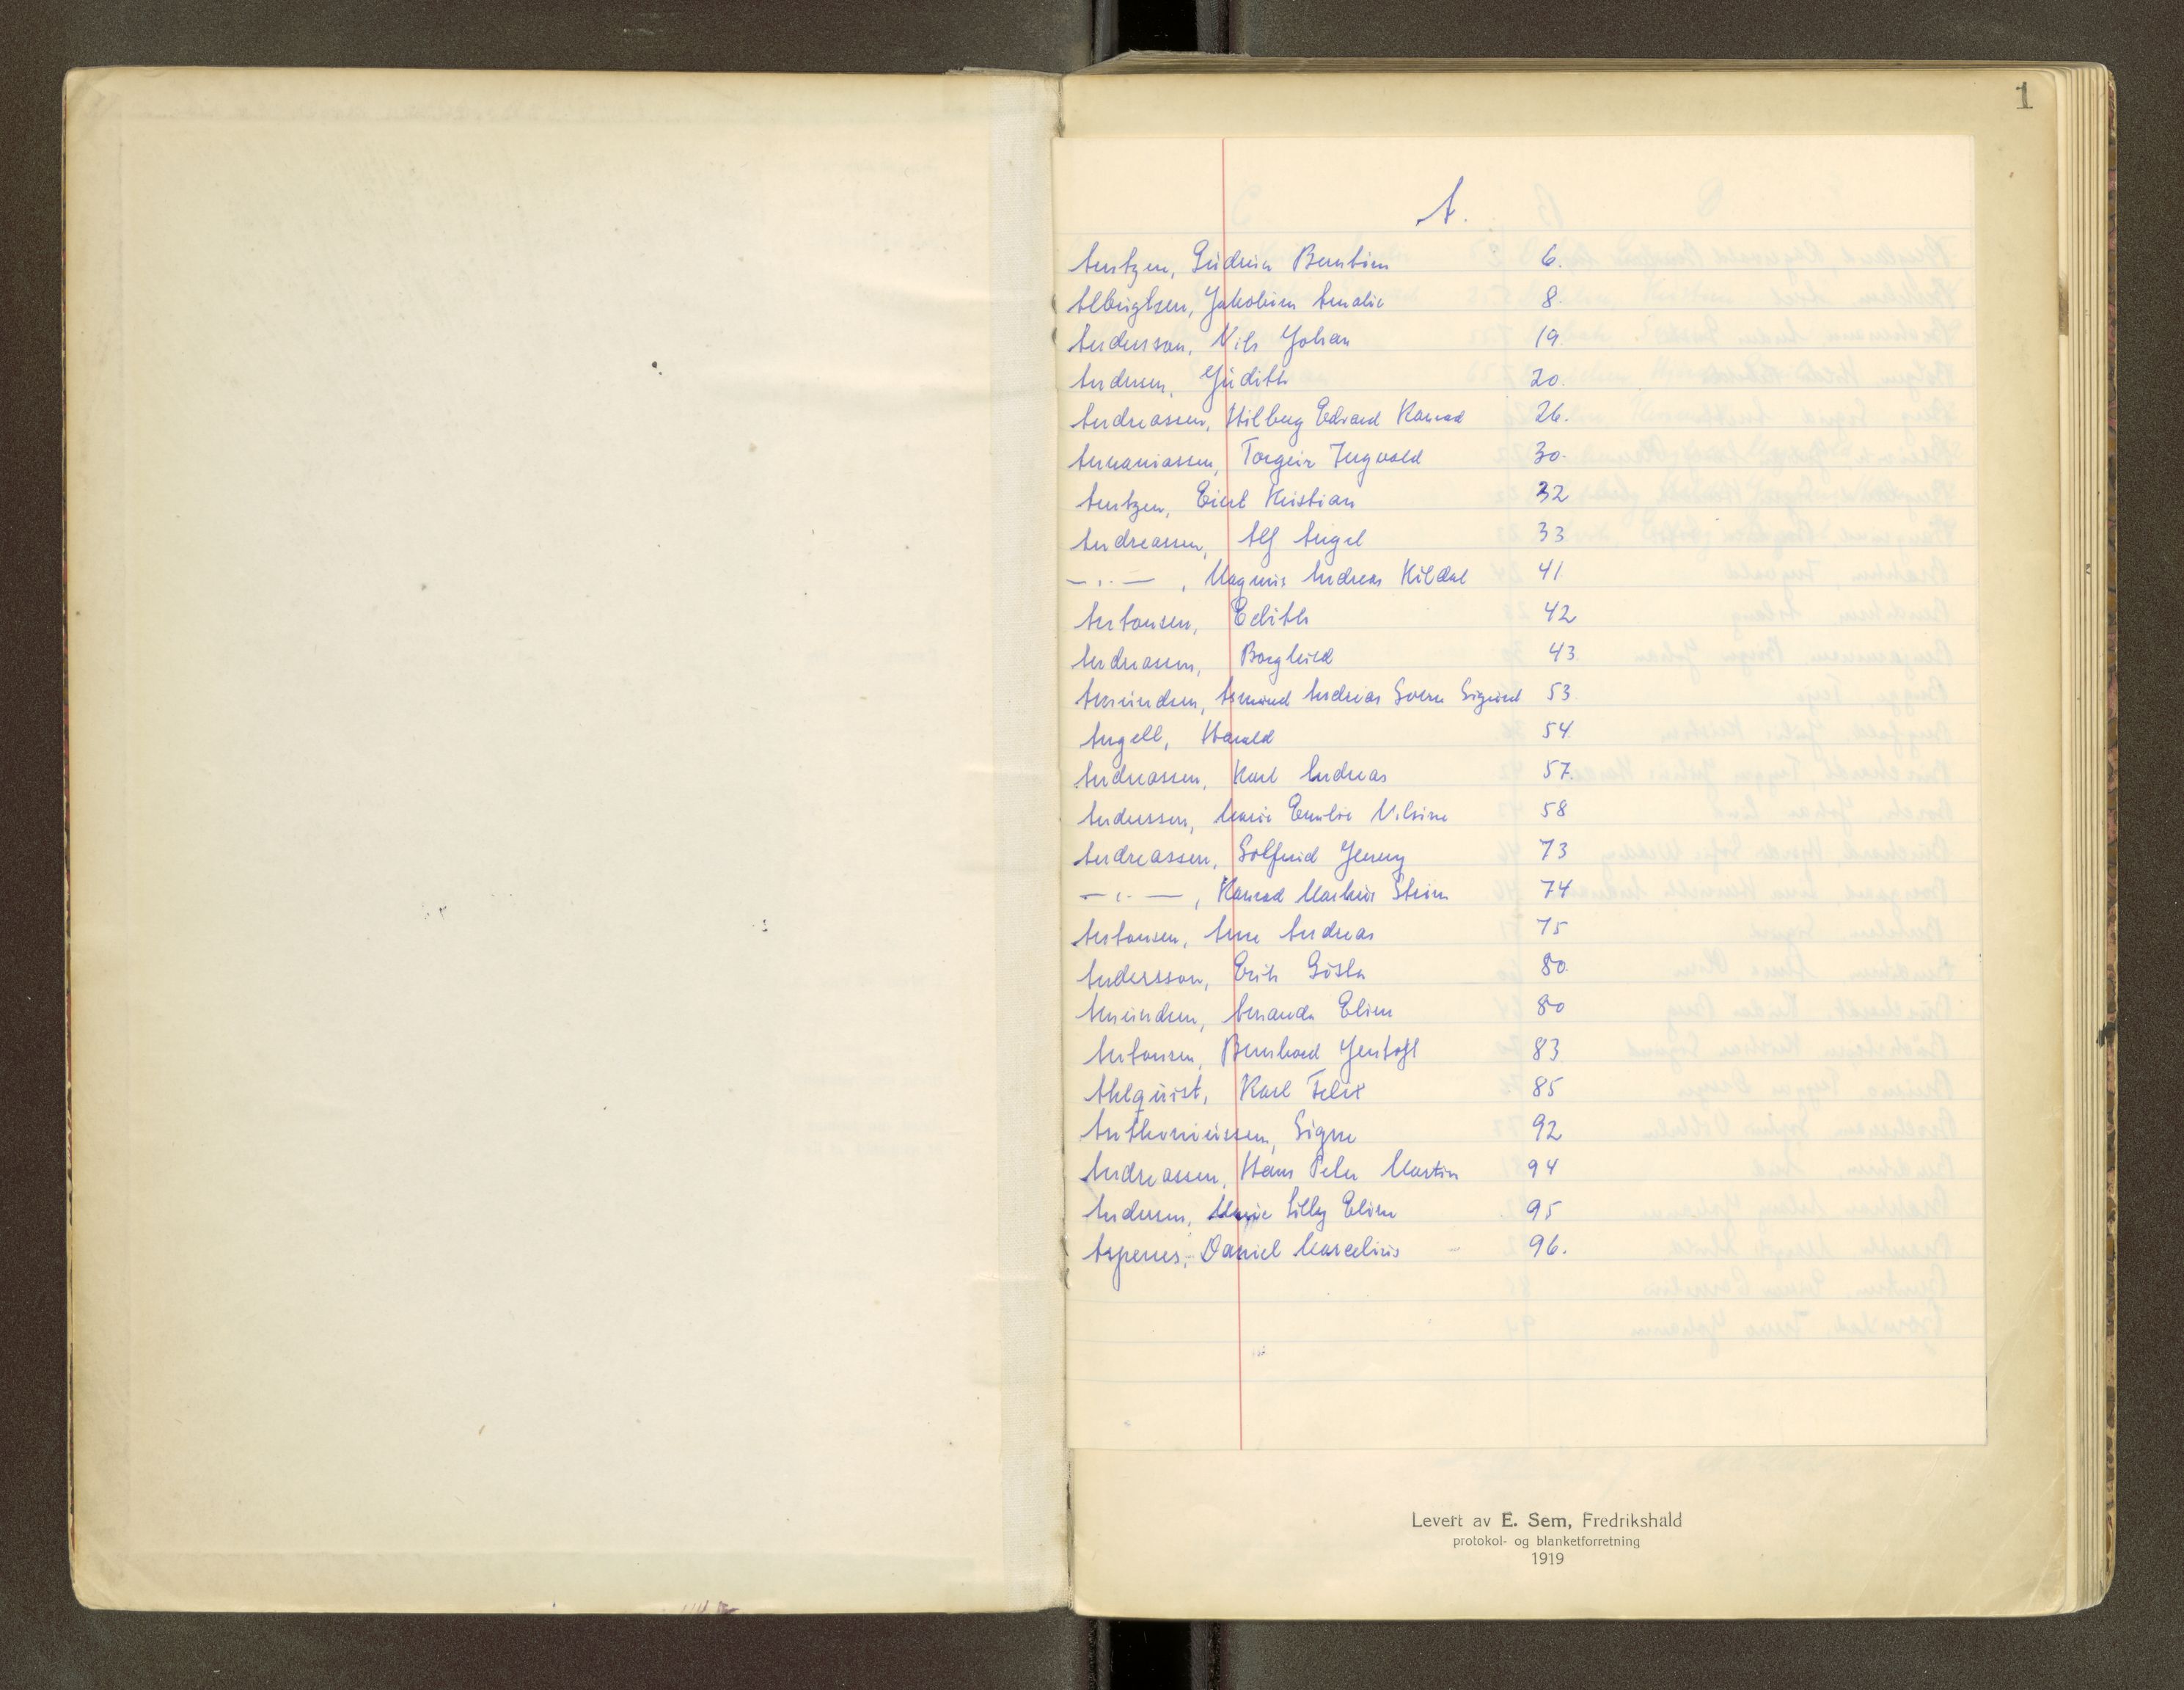 1
A.
Arntzen, Gudrun Berntine 6.
Albrigtsen, Jakobine Amalie 8.
Anderson, Nils Johan 19.
Andersen, Judith 20.
Andreassen, Hilberg Edvard Konrad 26.
Ananiassen, Torgeir Ingvald 30.
Arntzen, Einar Kristian 32
Andreassen, Alf Angel 33
—"—, Magnus Andreas Kildal 41
Antonsen, Edith 42
Andreassen, Borghild 43.
Amundsen, Asmund Andreas Sverre Sigurd 53.
Angell, Harald 54.
Andreassen, Karl Andreas 57.
Anderssen, Marie Emilie Nilsine 58
Andreassen, Solfrid Jenny 73
—"—, Konrad Markus Steen 74
Antonsen, Arne Andreas 75
Andersson, Erik Gösta 80.
Amundsen, Amanda Eline 80
Antonsen, Bernhard Jentoft 83
Ahlquist, Karl Felix 85
Anthoniussen, Signe 92
Andreassen, Hans Peter Martin 94
Andersen, Marie Lilly Elise 95
Aspenes, Daniel Marcelius - 96.
Levert av E. Sem, Fredrikshald
protokol- og blanketforretning
1919